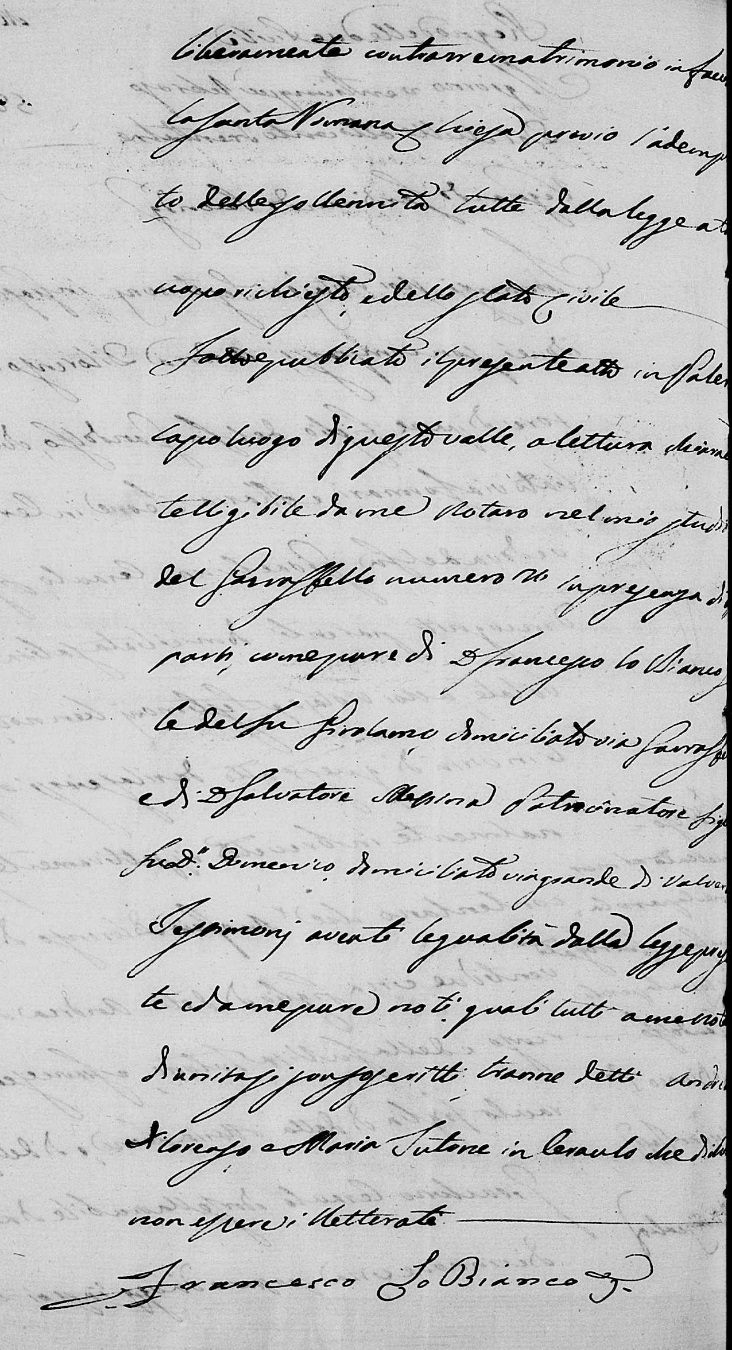 liberamente contrarre matrimonio in facci
la Santa Romana Chiesa previo l'adempi
to delle sollennità tutte dalla legge a t
uopo richiesto, e dello stato Civile
Fatto e pubblicato il presente atto in Paler
capoluogo di questo valle, a lettura chiara
telligibile da me Notaro nel mio studi
del Garraffello numero in presenza di
parti, come pure di D. Francesco lo Bianco
le del fu Girolamo domiciliato via Garraffe
e di D. Salvatore Messina Patrocinatore figl
fu D.n Domenico, domiciliato via grande di Valver
Testimonj aventi le qualità dalla legge pres
te ed a me pure noti, quali tutti a me nota
si sono soscritti tranne detti Andre
Di Lorenzo e Maria Tutone in Ceraulo che di
non essere illetterati
Francesco Lo Bianco